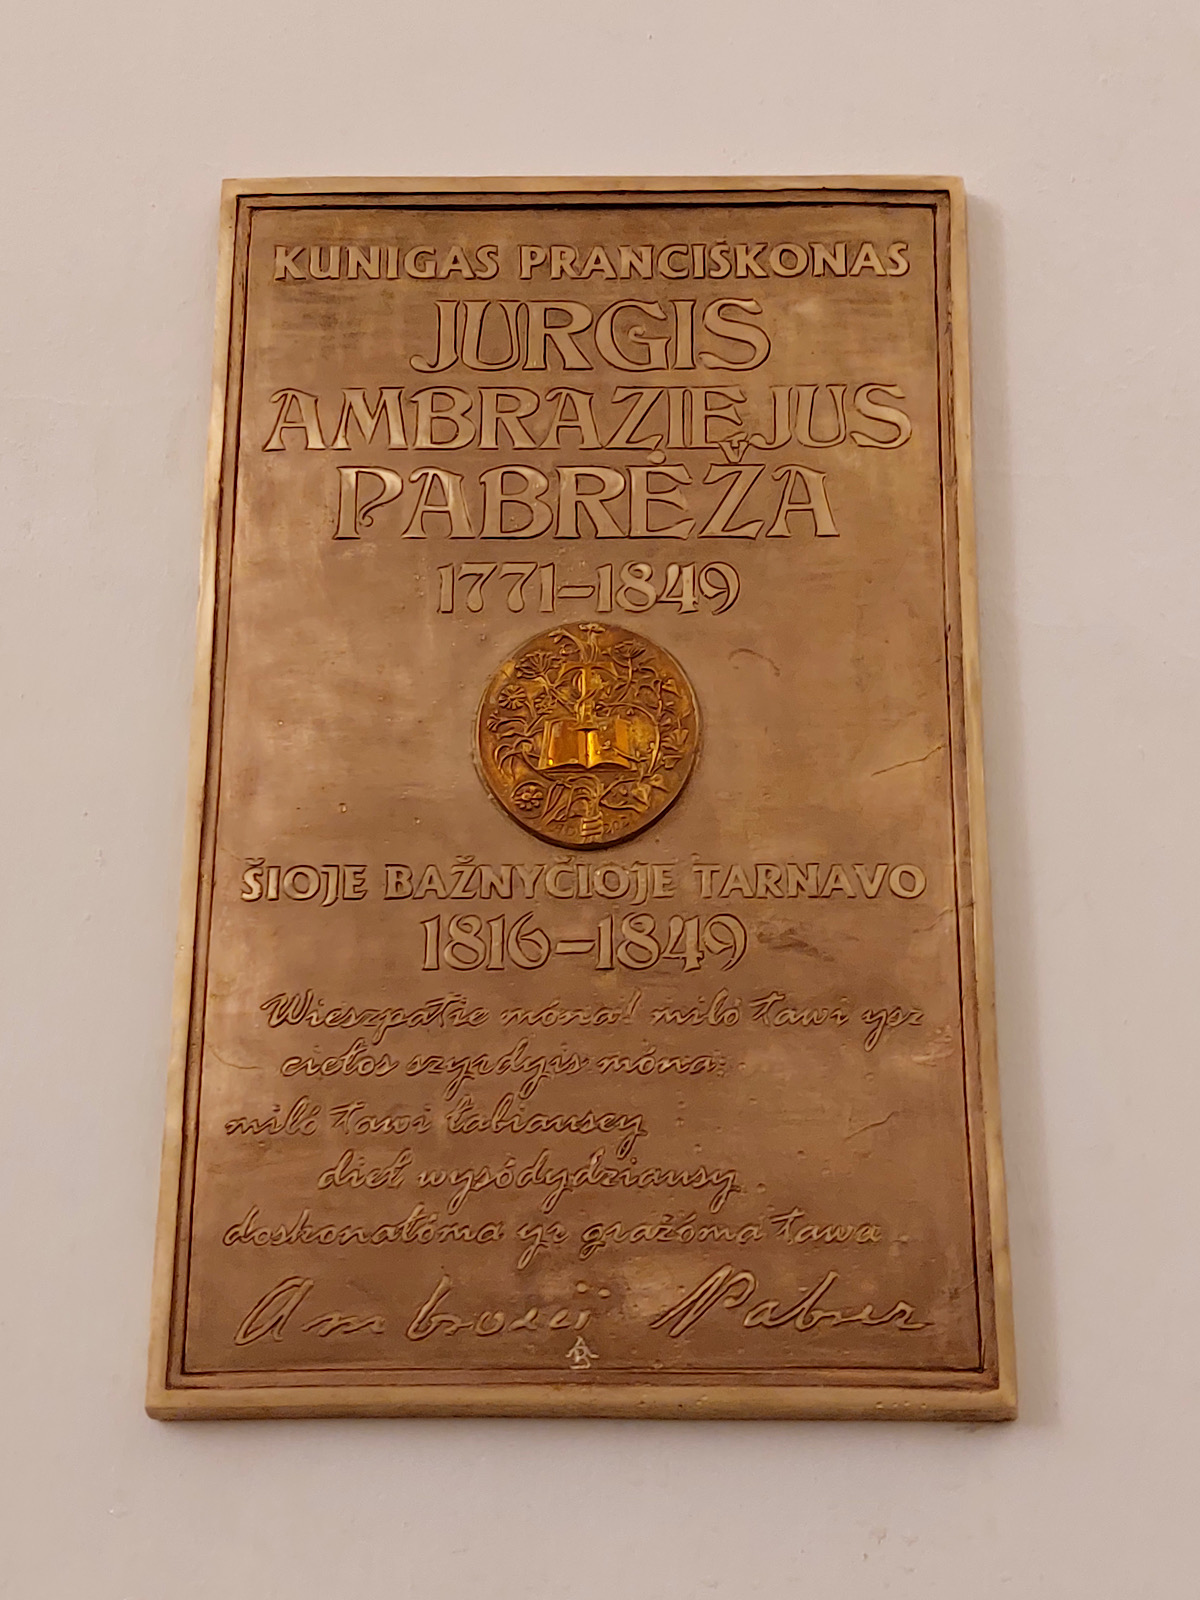 KUNIGAS PRANCIŠKONAS
JURGIS
AMBRAZIEJUS
PABRĖŽA
1771–1849
ŠIOJE BAŽNYČIOJE TARNAVO
1816–1849
Wieszpatie móna! miló tawi ysz
ciełos szyrdyis móna:
miló tawi łabiausey
dieł wysódydziausy
doskonałóma yr gražóma tawa
Ambrozij Pabrez